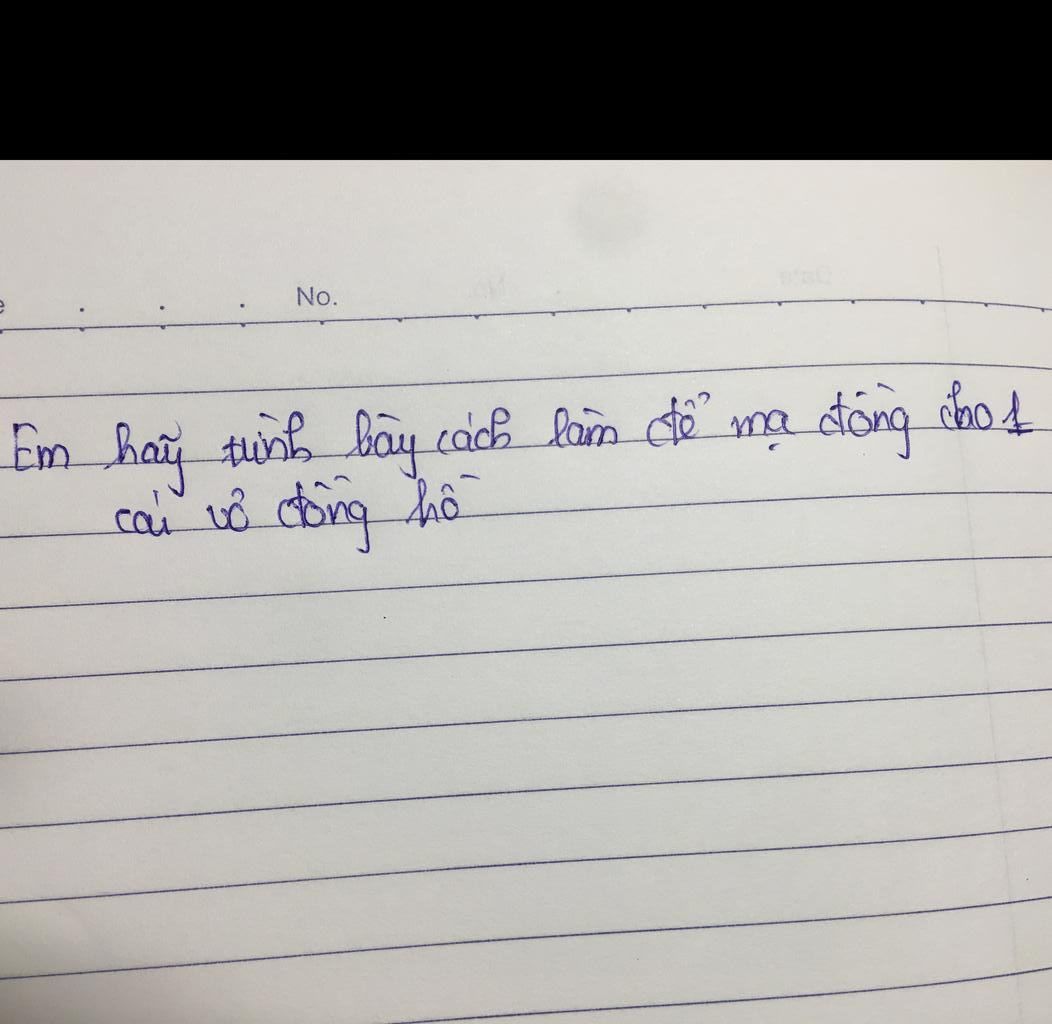 No.
Em hãy trình bày cách làm để mạ đồng cho 1
cái vỏ đồng hồ